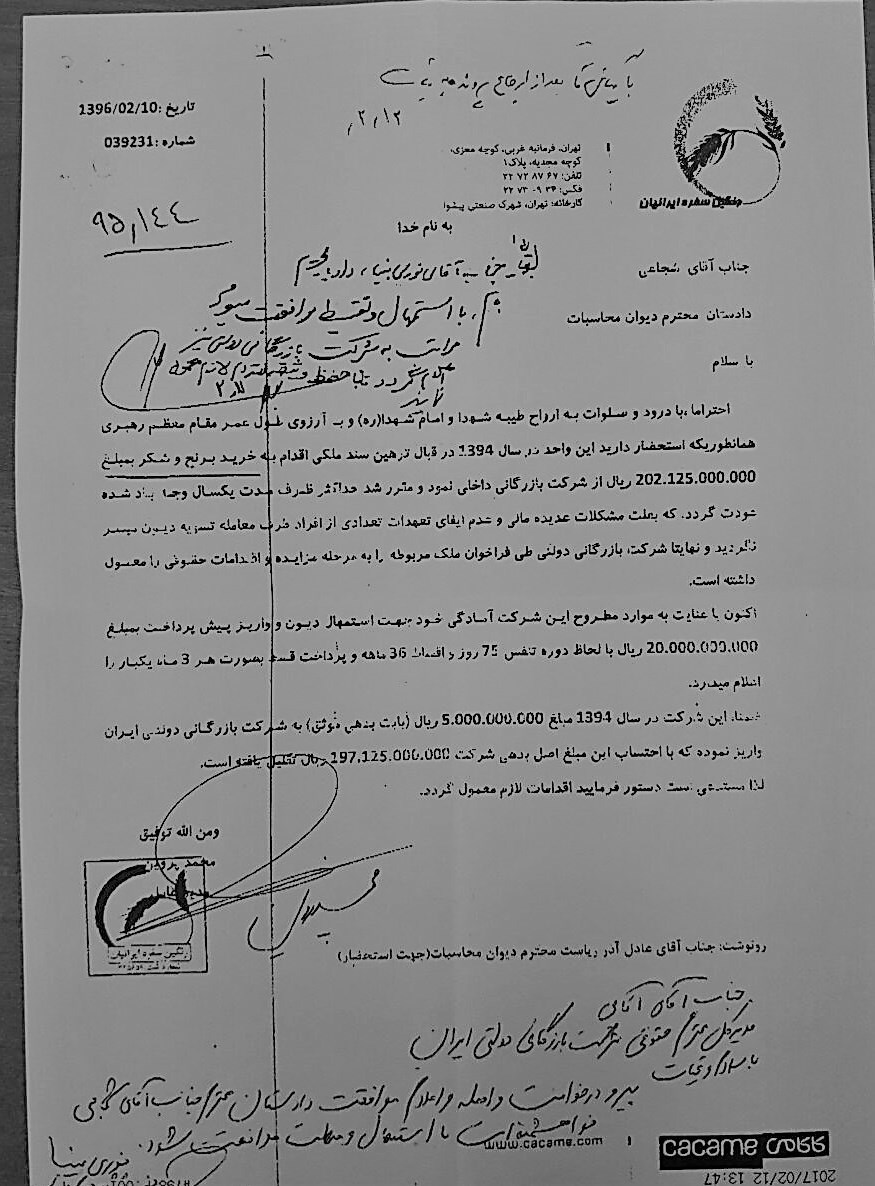 تاریخ :1396/02/10
شماره :039231
۹۵٫۱۴۴
با بعد از ارجاع پرونده به
۲٫۱۲
تهران، فرمانیه غربی، کوچه معزی،
کوچه مجدیه، پلاک۱
تلفن: ۶۷ ۸۷ ۷۲ ۲۲
فکس: ۳۴ ۰۹ ۷۳ ۲۲
کارخانه: تهران، شهرک صنعتی پیشوا
رنگین سفره ایرانیان
به نام خدا
جناب آقای شجاعی
دادستان محترم دیوان محاسبات
با سلام
آقای نوری نیا، دادیار محترم
با استمهال و تقسیط موافقت میگردد
مراتب به شرکت بازرگانی دولتی نیز
اعلام گردد تا با حفظ لازم معمول
نمایند
احتراما ،با درود و سلوات به ارواح طیبه شهدا و امام شهدا(ره) و به آرزوی طول عمر مقام معظم رهبری
همانطوریکه استحضار دارید این واحد در سال 1394 در قبال ترهین سند ملکی اقدام به خرید برنج و شکر بمبلغ
202.125.000.000 ریال از شرکت بازرگانی داخلی نمود و مقرر شد حداکثر ظرف مدت یکسال وجه یاد شده
عودت گردد. که بعلت مشکلات عدیده مالی و عدم ایفای تعهدات تعدادی از افراد طرف معامله تسویه دیون میسر
نگردید و نهایتا شرکت بازرگانی دولتی طی فراخوان ملک مربوطه را به مرحله مزایده و اقدامات حقوقی را معمول
داشته است.
اکنون با عنایت به موارد مطروح این شرکت آمادگی خود جهت استمهال دیون و واریز پیش پرداخت بمبلغ
20.000.000.000 ریال با لحاظ دوره تنفس 75 روز و اقساط 36 ماهه و پرداخت قسط بصورت هر 3 ماه یکبار را
اعلام میدارد.
ضمنا، این شرکت در سال 1394 مبلغ 5.000.000.000 ریال (بابت بدهی موثق) به شرکت بازرگانی دولتی ایران
واریز نموده که با احتساب این مبلغ اصل بدهی شرکت 197.125.000.000 ریال تقلیل یافته است.
لذا مستدعی است دستور فرمایید اقدامات لازم معمول گردد.
ومن الله توفیق
محمد پروین
مدیر عامل
رنگین سفره ایرانیان
رونوشت: جناب آقای عادل آذر ریاست محترم دیوان محاسبات(جهت استحضار)
جناب آقای آقایی
مدیرکل محترم حقوقی شرکت بازرگانی دولتی ایران
با سلام و تحیات
پیرو درخواست واصله و اعلام موافقت دادستان محترم جناب آقای شجاعی
خواهشمند است با استمهال و مهلت موافقت شود.
نوری نیا
www.cacame.com
cacame کاکامی
2017/02/12 13:47